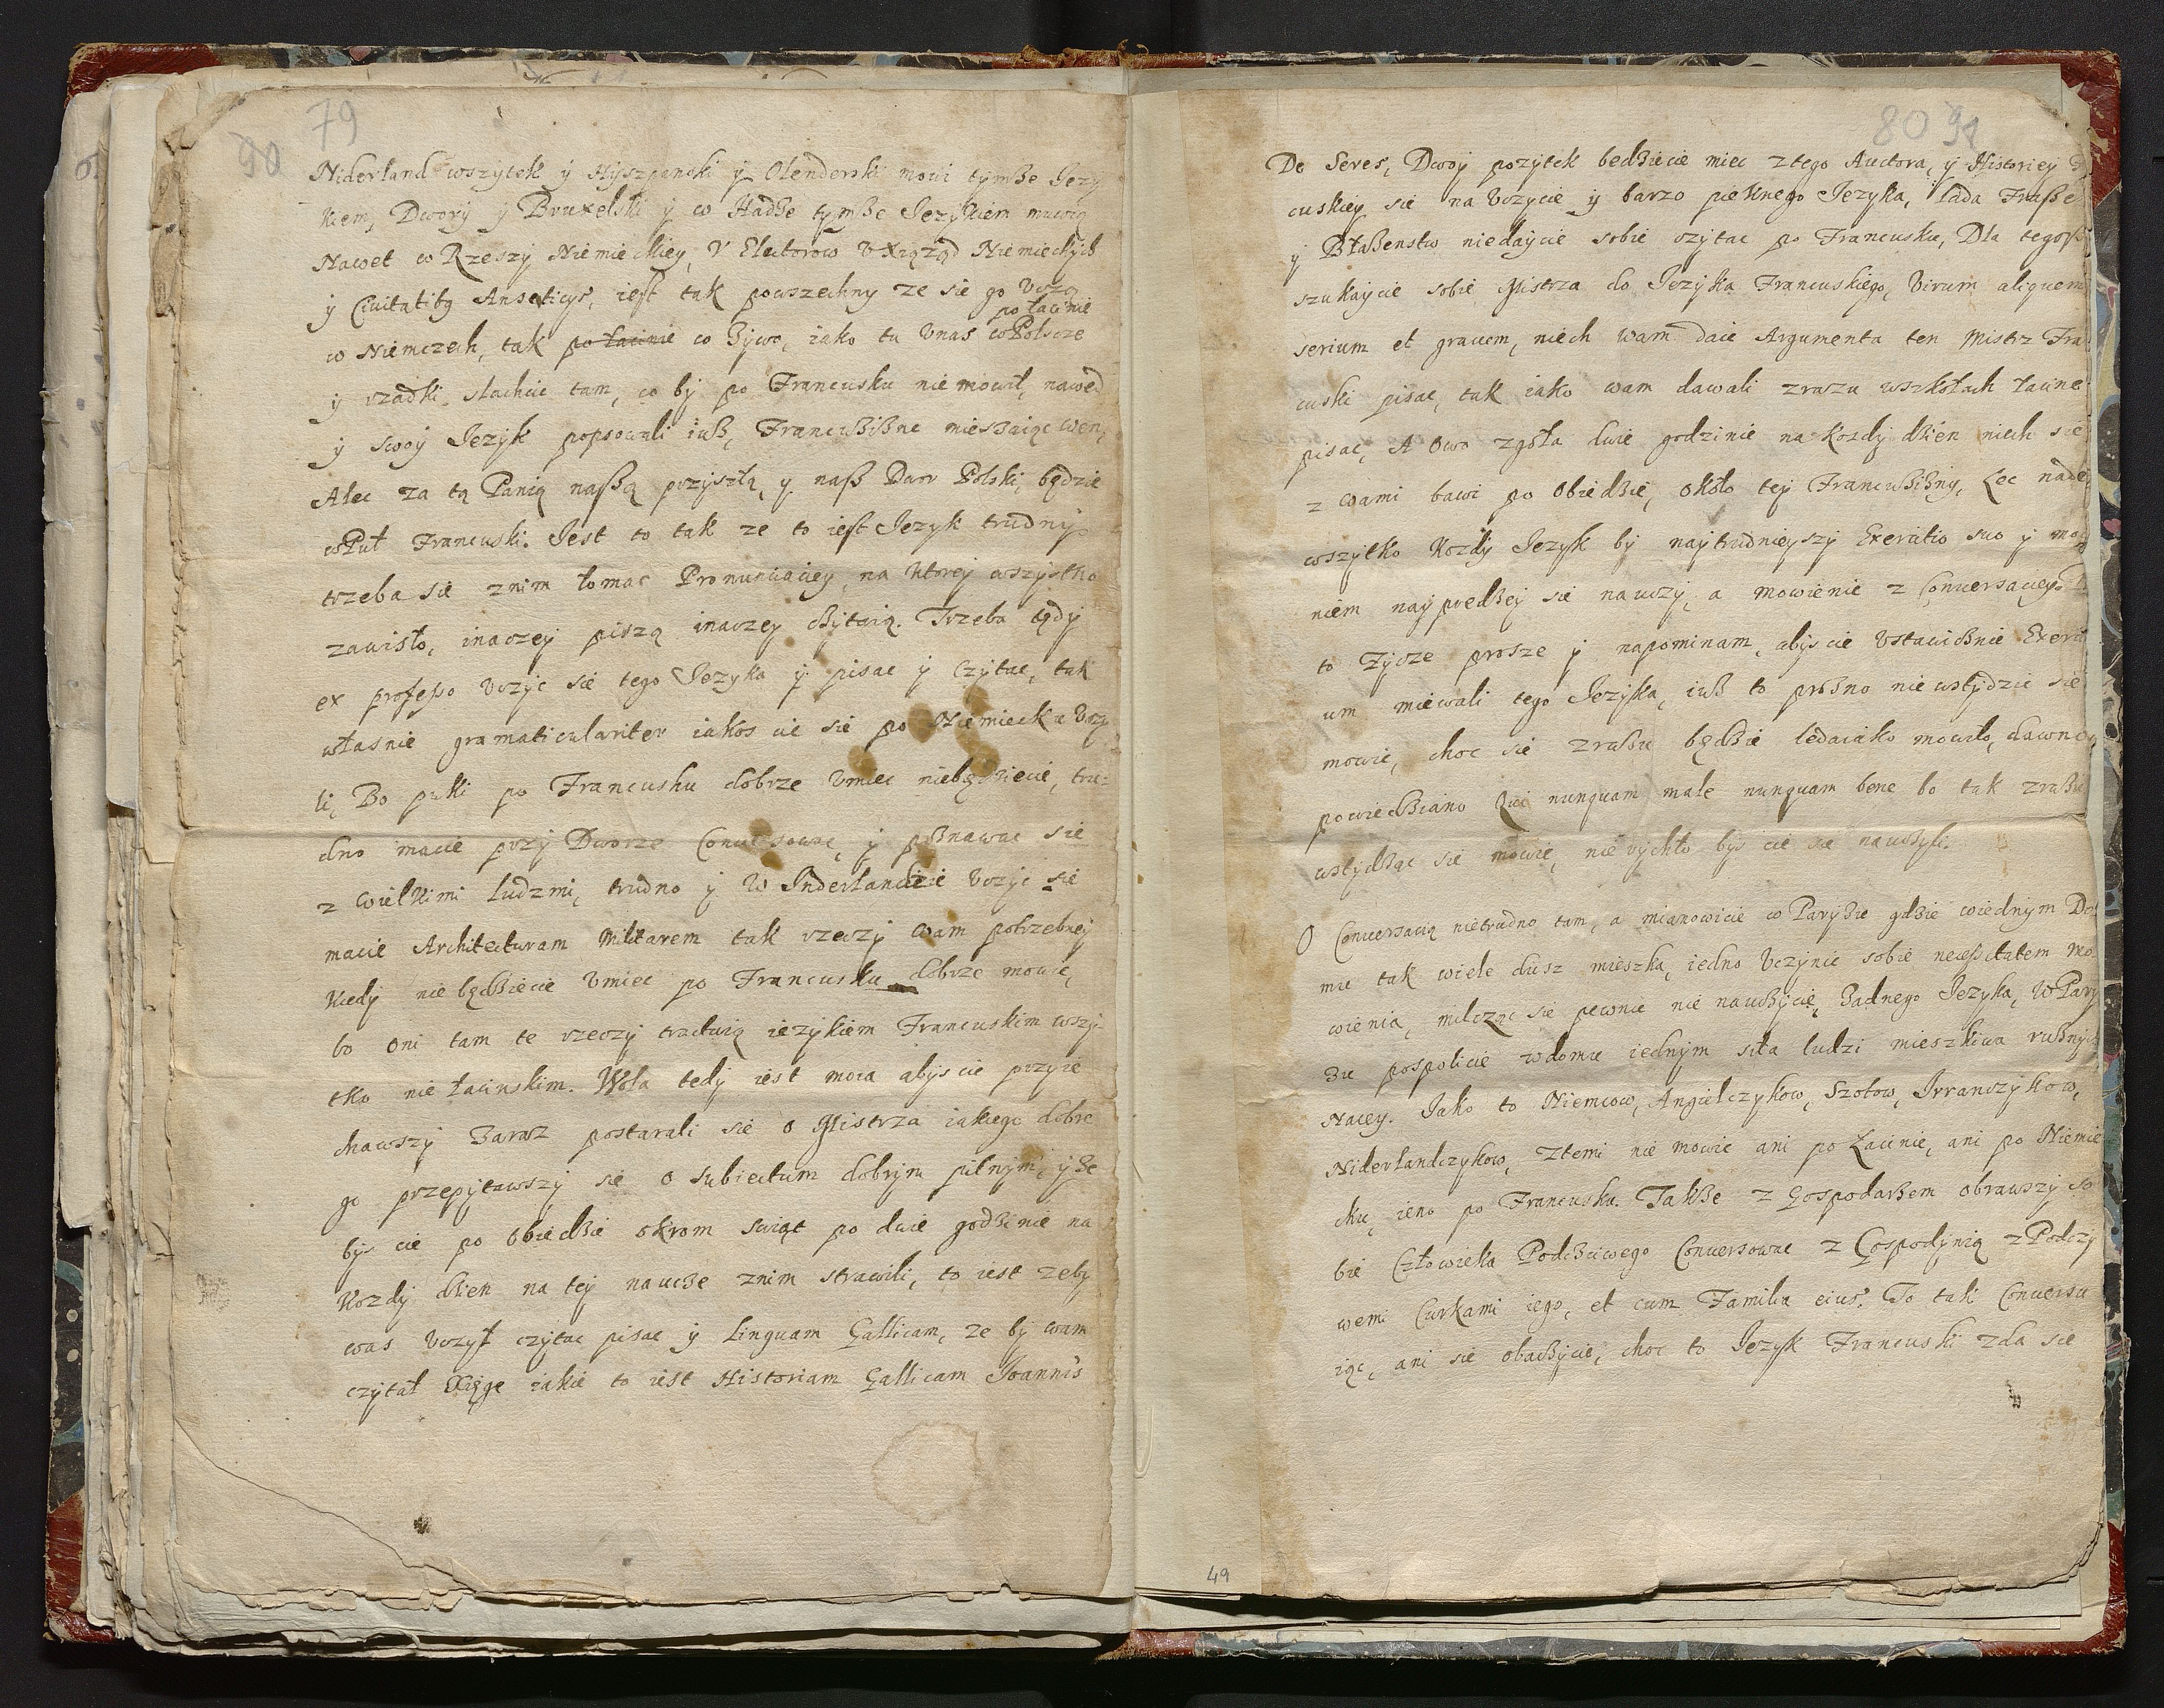 79
90
Niderland wszytek y Hyszpanski y Olenderski mowi tymże Jezy
kiem, Dwory y Bruxelski y w Hadze tymże Jezykiem mowią
Nawet w Rzeszy Niemieckiey, V Electorow v Xiążąd Niemieckych
y Civitatibq Anseticys, iest tak powszechny ze się go vczą
po łacinie
w Niemczech, tak po łacinie co żywo, iako tu vnas w Polscze
y rzadki slachcic tam, co by po Francusku nie mowił, nawed
y swoy Jezyk popsowali iuß, Francußißne mieszaiąc wen,
Alec za tą Panią naßą przyszłą, y naß Dwor Polski, będzie
w Puł Francuski. Jest to tak ze to iest Jezyk trudny
trzeba się znim łomac Pronunciaciey, na ktorey wszystko
zawisło, inaczey piszą inaczey czytaią. Trzeba tędy
ex professo vczyc się tego Jezyka y pisac y czytac, tak
własnie gramaticulariter iakos cie się po Niemiecku vczy
li, Bo puki po Francusku dobrze vmiec niebędziecie, tru-
dno macie przy Dworze Conversowac, y poznawac się
z wielkimi ludzmi, trudno y w Inderlandzie vczyc się
macie Architecturam Militarem tak rzeczy wam potrzebney
Kiedy nie będziecie vmiec po Francusku dobrze mowic,
bo oni tam te rzeczy tractuią iezykiem Francuskim wszy-
tko nie łacinskim. Wola tedy iest moia abyscie przyie
chawszy zaraz postarali się o Mistrza iakiego dobre
go przepytawszy się o subiectum dobrym pilnym, y że
bys cie po obiedzie okrom swiąt po dwie godzinie na
Kozdy dzien na tey nauce znim strawili, to iest zeby
was vczył czytac pisac y Linguam Gallicam, ze by wam
czytał Xięgę iakie to iest Historiam Gallicam Joannis
80 91
De Seres, Dwoy pozytek bedziecie miec z tego Auctora, y Historiey
cuskiey się na vczycie y barzo pieknego Jezyka, lada Fraße
y Błaßenstw niedaycie sobie czytac po Francusku, Dla tegoß
szukaycie sobie Mistrza do Jezyka Francuskiego, virum aliquem
serium et gravem, niech wam daie Argumenta ten Mistrz Fra
cuski pisac, tak iako wam dawali zrazu wszkołach łacine
pisac, A owo zgoła dwie godzinie na kozdy dzien niech się
z wami bawi po obiedzie, około tey Francußißny, Lec nade
wszytko kozdy Jezyk by naytrudnieyszy Exercitio suo y mo
niem nayprędzey się nauczy, a mowienie z Conversaciey.
to życze prosze y napominam, abyscie vstawicznie Exerci
um miewali tego Jezyka, iuß to prozno nie wstydzic się
mowic, choc się zrazu będzie ledaiako mowiło, dawno
powiedziano Qui nunquam male nunquam bene bo tak zrazu
wstydząc się mowic, nie rychło bys cie się nauczyli.
O Conversacią nietrudno tam, a mianowicie w Paryzu gdzie wiednym Do
mu tak wiele dusz mieszka, iedno vczynic sobie necessitatem mo
wienia, milcząc się pewnie nie nauczycie, żadnego Jezyka, W Pary
zu pospolicie wdomu iednym siła ludzi mieszkiwa rußnych
Nacey. Jako to Niemcow, Angielczykow, Szotow, Irranczykow,
Niderlandczykow, ztemi nie mowic ani po Łacinie, ani po Niemie
cku, ieno po Francusku. Także z Gospodarzem obrawszy so
bie Człowieka Podczciwego Conversowac z Gospodynią z Podczy
wemi Curkami iego, et cum Familia eius. To tak Conversu
iąc, ani się obaczycie, choc to Jezyk Francuski zda się
49